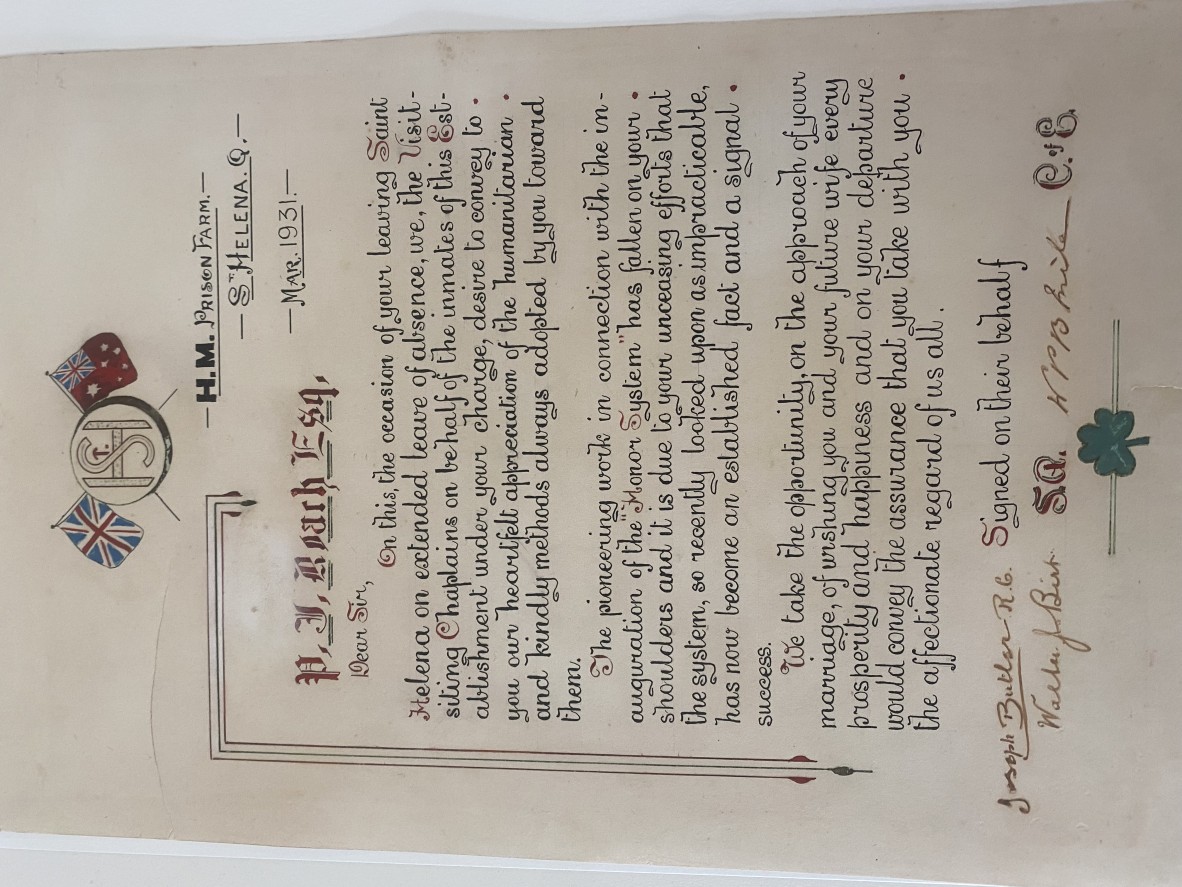 —H.M. PRISON FARM.—
—ST HELENA. Q.—
—MAR. 1931.—
P. J. Roach Esq,
Dear Sir,
On this, the occasion of your leaving Saint
Helena on extended leave of absence, we, the Visit-
siting Chaplains on behalf of the inmates of this Est-
ablishment under your charge, desire to convey to .
you our heartfelt appreciation of the humanitarian .
and kindly methods always adopted by you toward
them.
The pioneering work in connection with the in-
auguration of the "Honor System" has fallen on your .
shoulders and it is due to your unceasing efforts that
the system, so recently looked upon as impracticable,
has now become an established fact and a signal .
success.
We take the opportunity, on the approach of your
marriage, of wishing you and your future wife every
prosperity and happiness and on your departure
would convey the assurance that you take with you .
the affectionate regard of us all.
Signed on their behalf
Joseph Butler R.C.
Walter J Bist S.A.
C. of E.